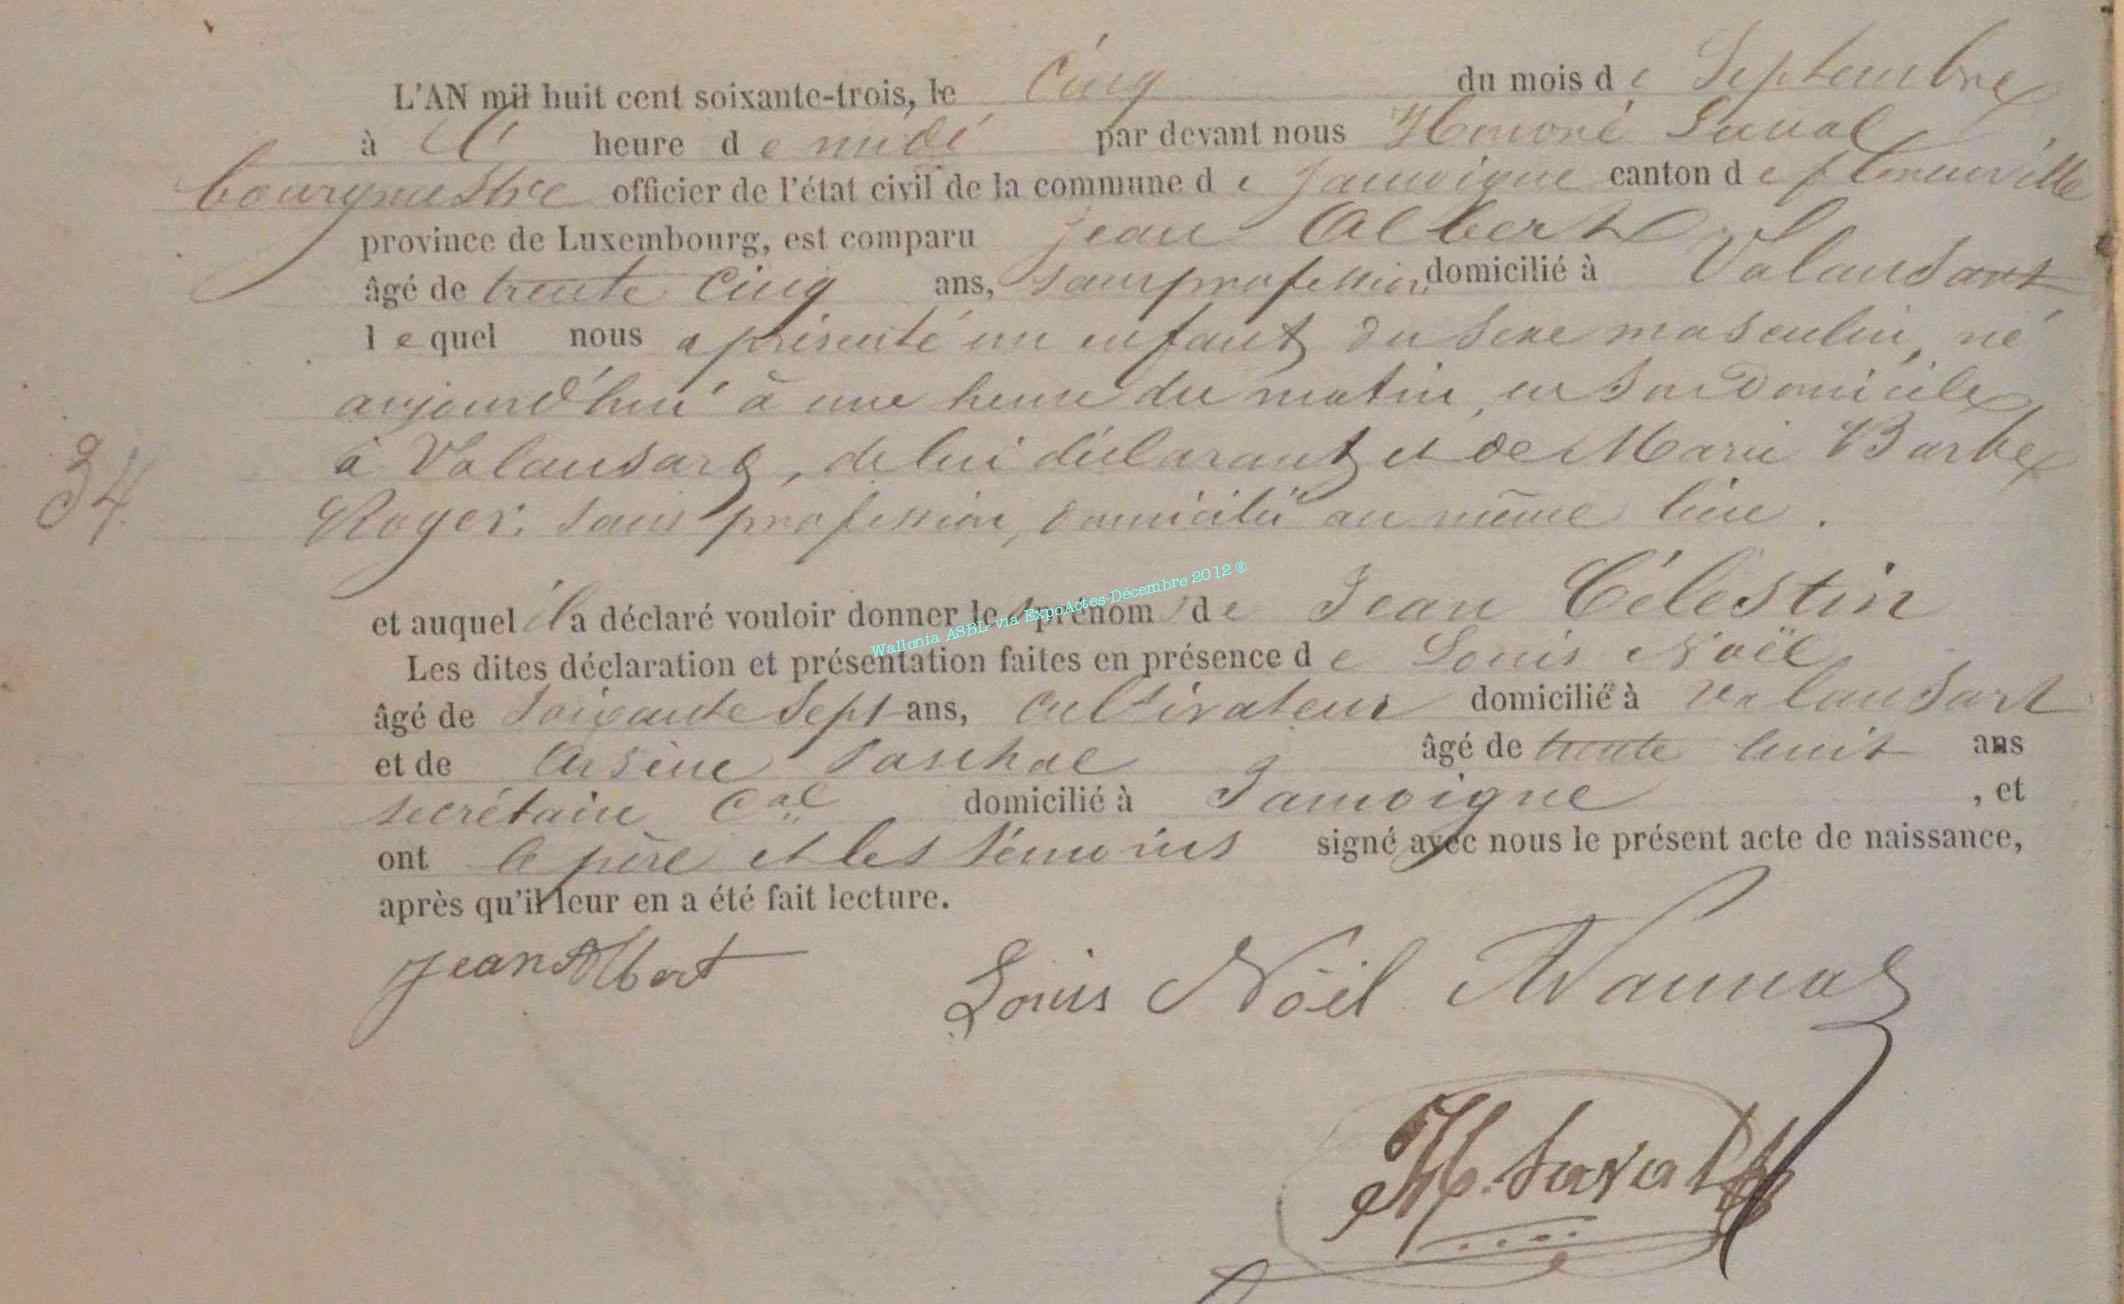 L'AN mil huit cent soixante-trois, le Cinq du mois de Septembre
à heure de midi par devant nous Honoré
bourgmestre officier de l'état civil de la commune de Jamoigne canton de florenville
province de Luxembourg, est comparu Jean Albert
âgé de trente Cinq ans, sans profession, domicilié à Valansart
lequel nous a présenté un enfant du sexe masculin, né
aujourd'hui à une heure du matin, en son domicile
à Valansart, de lui déclarant et de Marie Barbe
34
Roger, sans profession, domicilié au même lieu.
et auquel il a déclaré vouloir donner les prénoms de Jean Célestin
Wallonia ASBL via ExpoActes-Décembre 2012 ®
Les dites déclaration et présentation faites en présence de Louis Noël
âgé de soixante sept ans, cultivateur domicilié à Valansart
et de Arsène Paschal âgé de trente huit ans
secrétaire Cal domicilié à Jamoigne, et
ont le père et les témoins signé avec nous le présent acte de naissance,
après qu'il leur en a été fait lecture.
Jean Albert Louis Nöel
H. Laval